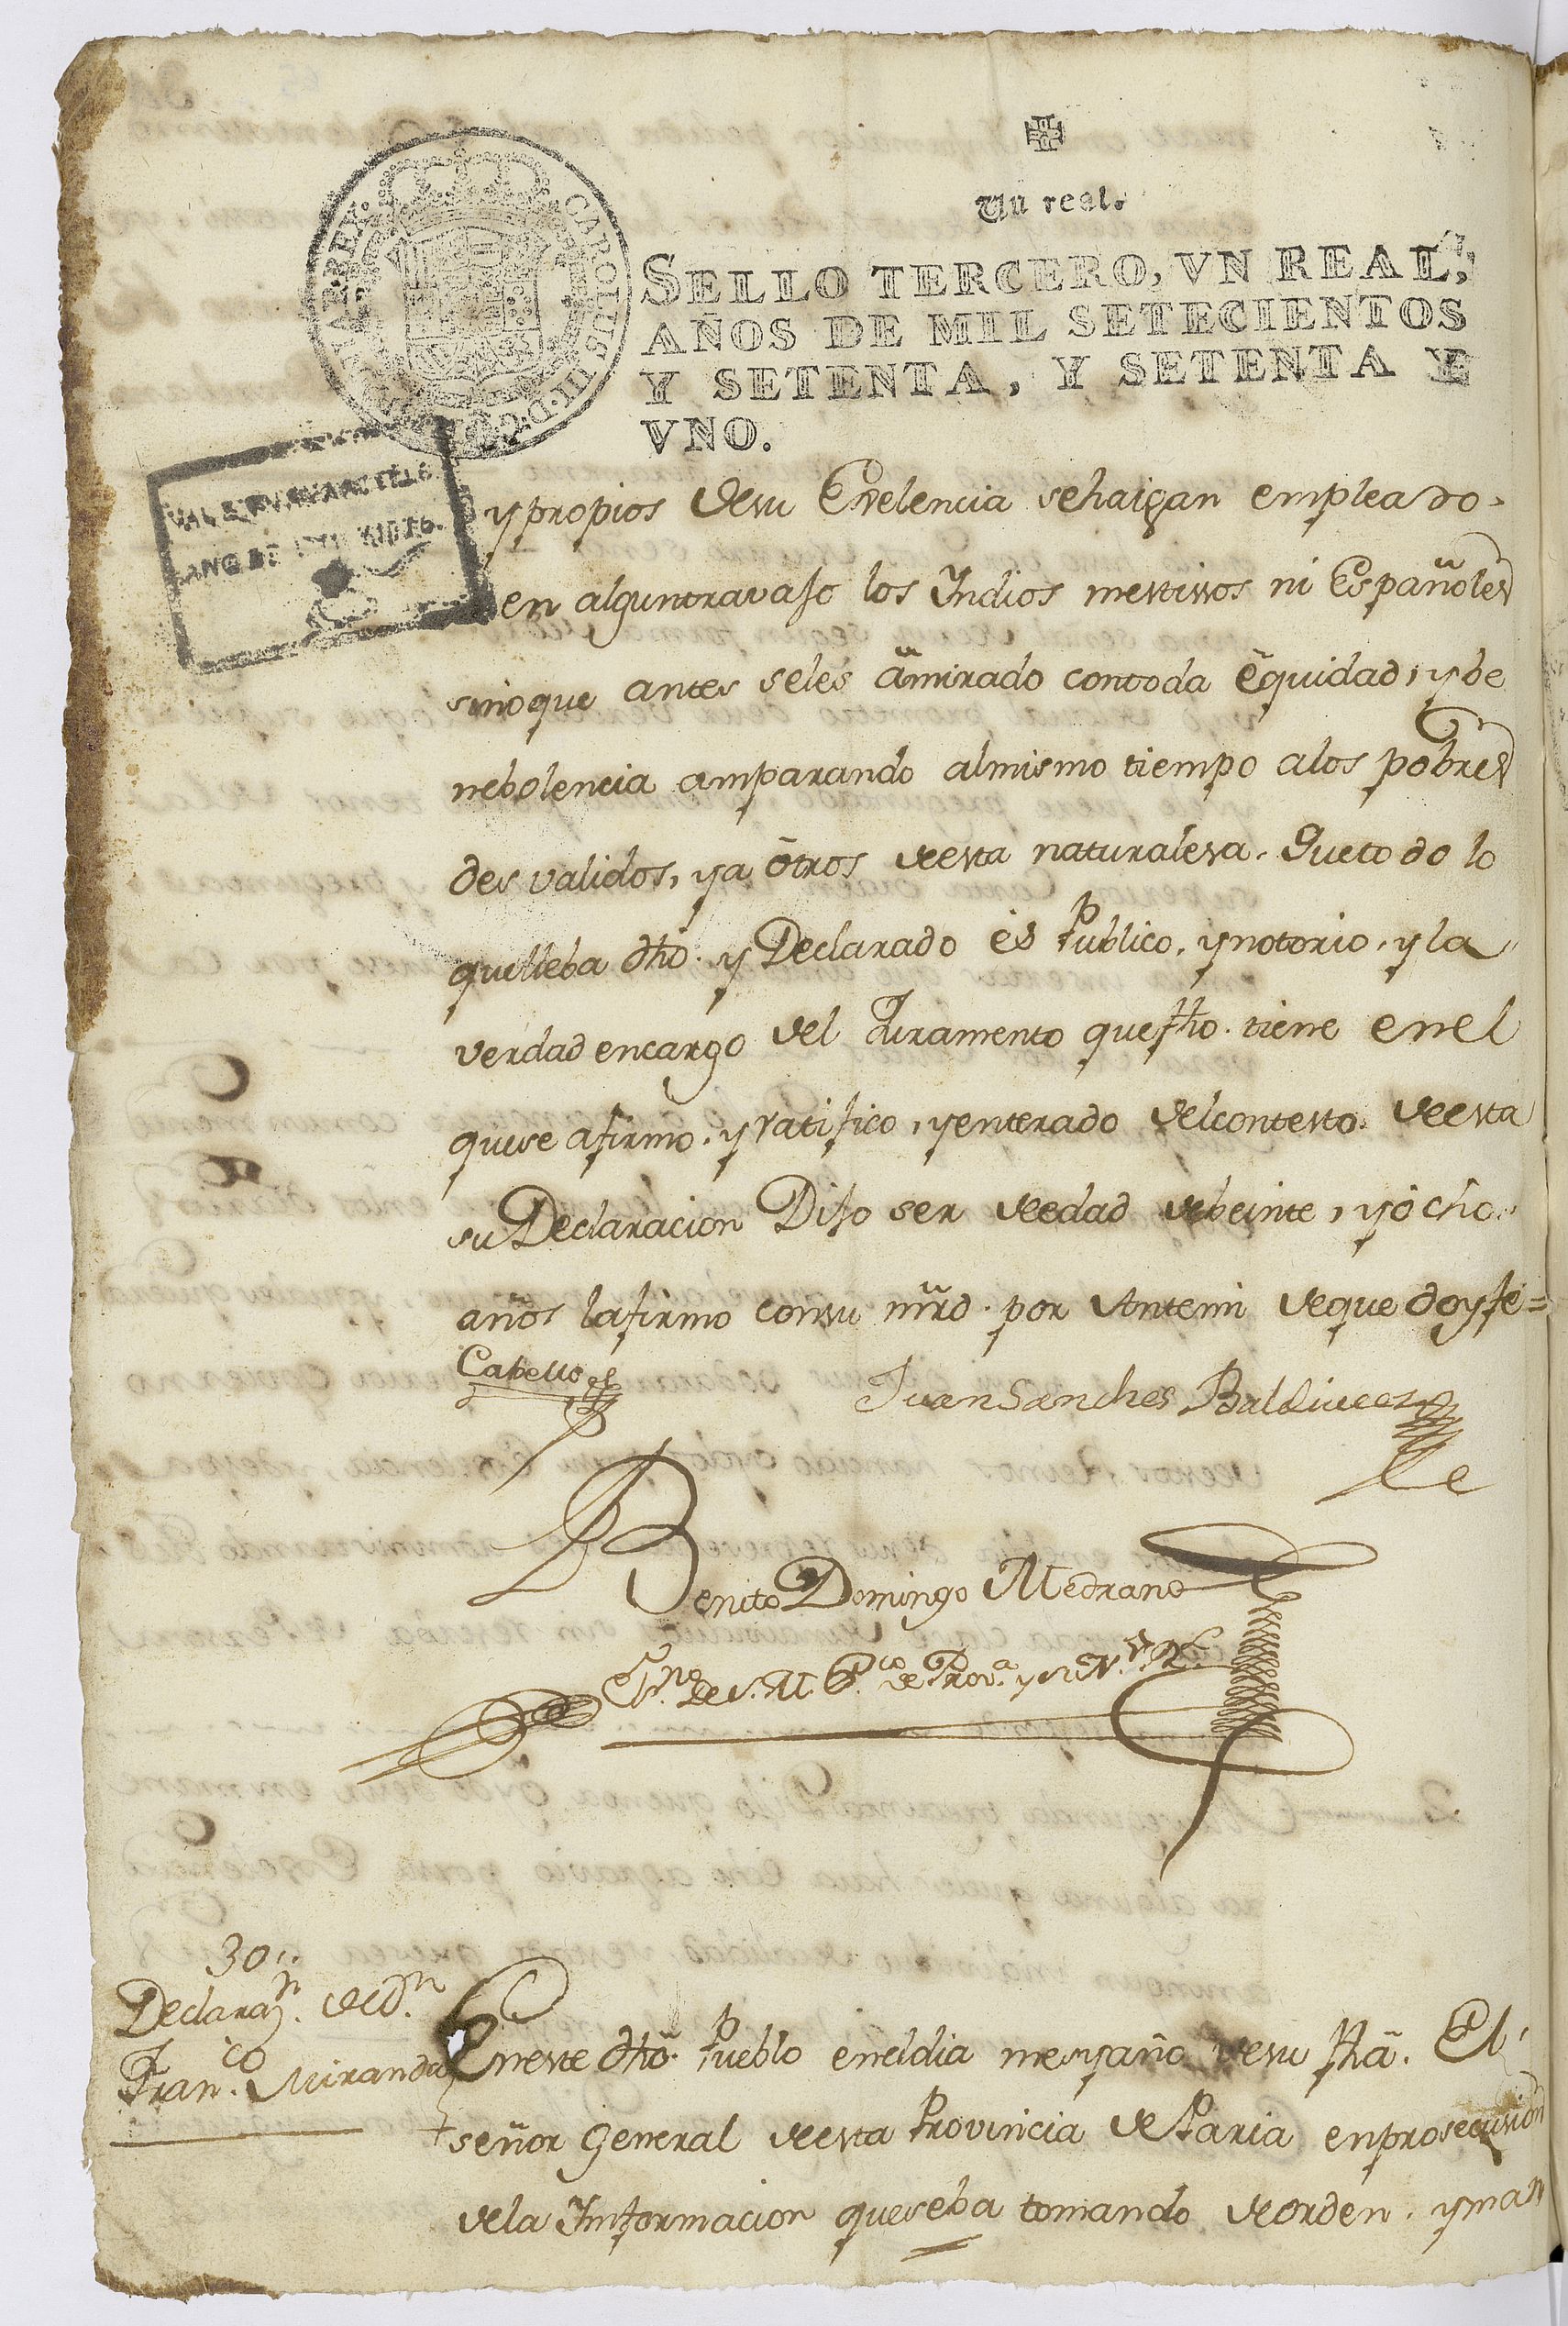 Un real.
SELLO TERCERO, VN REAL,
AÑOS DE MIL SETECIENTOS
Y SETENTA, Y SETENTA Y
VNO.
CAROLUS III D. G.
y propios desu Exelencia sehaigan empleado
en alguntravajo los Yndios mestissos ni Españoles
sinoque antes seles â mirado contoda equidad, y be
nebolencia amparando almismo tiempo alos pobres
des validos, ya ôtros deesta naturalesa. Quetodo lo
quelleba dho. y Declarado es Publico, ynotorio, y la
verdad encargo del Juramento quefho. tiene enel
quese afirmo, y ratifico, yenterado delcontesto deesta
su Declaracion Dijo ser deedad debeinte, yôcho
años lafirmo consu mrd. por Antemi deque doyfe=
Cabello
Juan Sanches Baldivieso
Benito Domingo Medrano
Esno. de S. M. Pco. de Prova. y
30
Declaran. de Dn.
Franco. Miranda
Eneste dho. Pueblo eneldia mesyaño desu fha. El
señor General deesta Provincia de Paria enprosecusion
dela Informacion queseba tomando deorden, yman